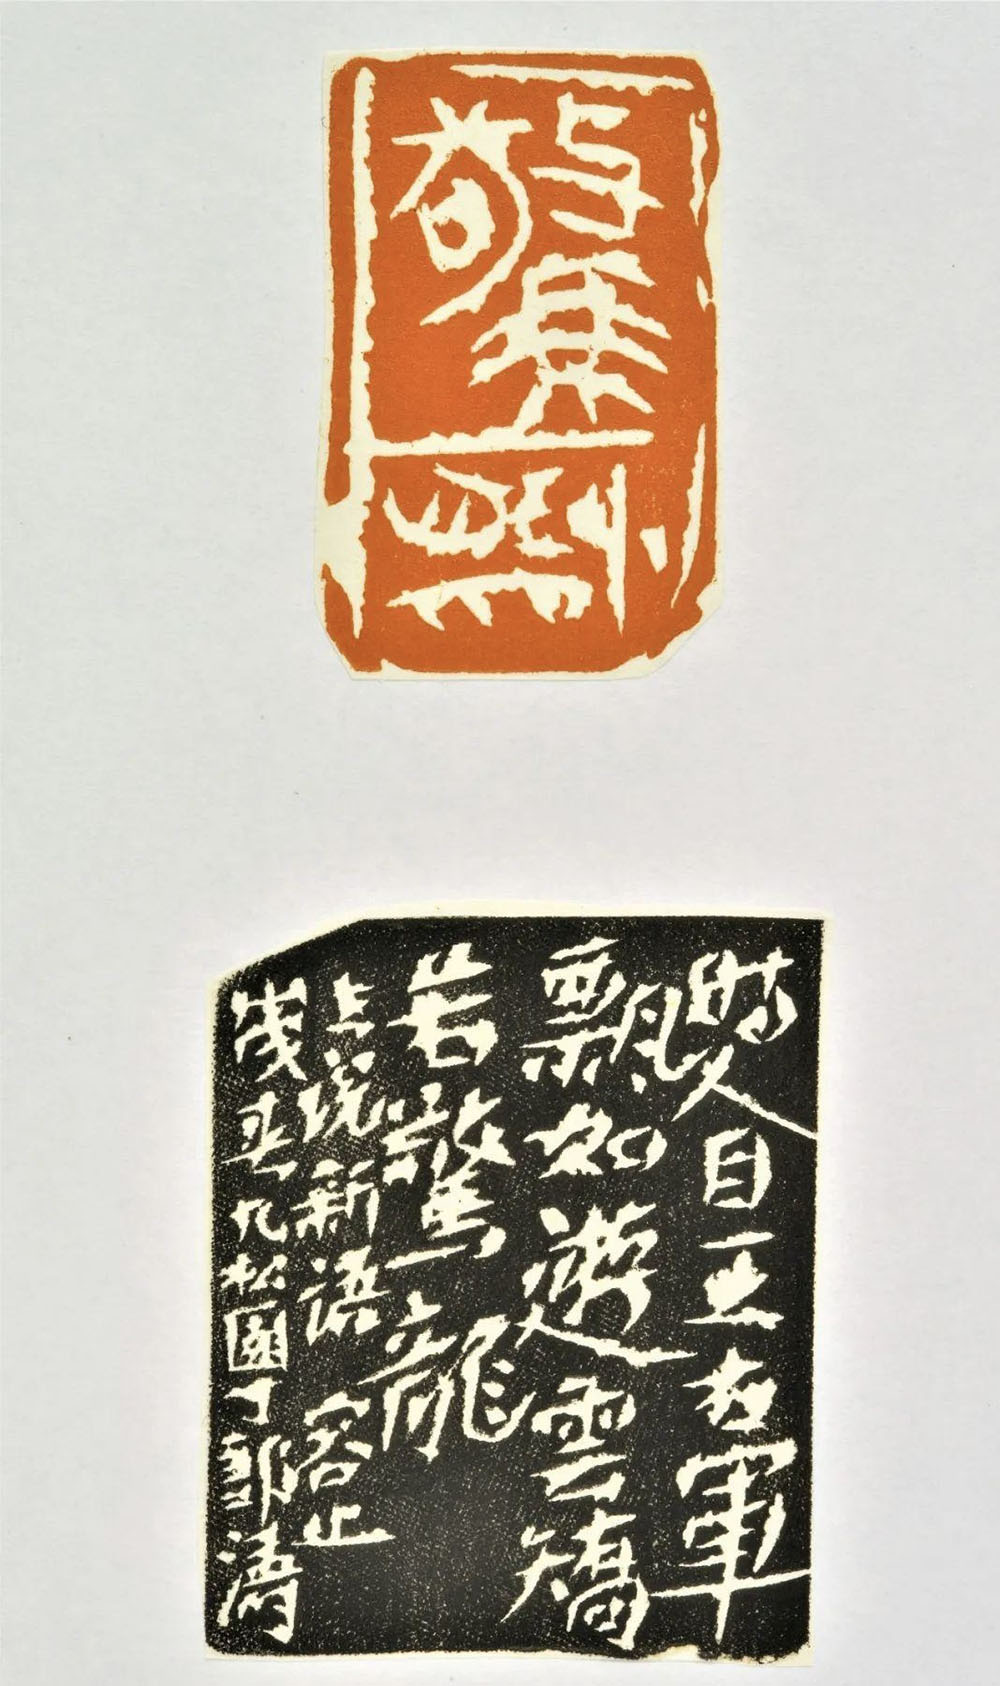 驚龍
時人目王右軍
飄如遊雲矯
若驚龍
世說新語容止
九松園丁濤